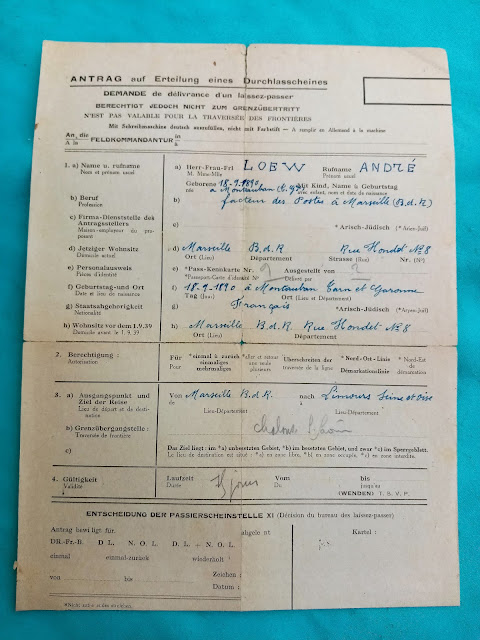 ANTRAG auf Erteilung eines Durchlasscheines
DEMANDE de délivrance d'un laissez-passer
BERECHTIGT JEDOCH NICHT ZUM GRENZÜBERTRITT
N'EST PAS VALABLE POUR LA TRAVERSÉE DES FRONTIÈRES
Mit Schreibmaschine deutsch auszufüllen, nicht mit Farbstift — A remplir en Allemand à la machine
An, die FELDKOMMANDANTUR in
A la à
1. a) Name u. rufname a) Herr-Frau-Frl LOEW Rufname ANDRÉ
Nom et prénom usuel M. Mme-Mlle Prénom usuel
Geborene 18-9-1890 Mit Kind, Name à Geburtstag
née à Montauban avec enfant, nom et date de naissance
b) Beruf b) facteur des Postes à Marseille (B.d.R)
Profession
c) Firma-Dienststelle des Antragstellers c) *Arisch-Jüdisch *(Aryen-Juif)
Maison-employeur du proposant
d) Jetziger Wohnsitz d) Marseille B.d.R Rue Hondet N° 8
Domicile actuel Ort (Lieu) Département Strasse (Rue) Nr. (N°)
e) Personalausweis e) *Pass-Kennkarte Nr. ? Ausgestellt von ?
Pièces d'identité *Passeport-Carte d'identité N° Délivré par
f) Geburtstag-und Ort f) 18-9-1890 à Montauban Tarn et Garonne
Date et lieu de naissance Tag (Jour) Ort (Lieu et Département)
g) Staatsahgehorigkeit g) Français *Arisch-Jüdisch *(Aryen-Juif)
Nationalité
h) Wohnsitz vor dem 1.9.39 h) Marseille B.d.R. Rue Hondet N° 8
Domicile avant le 1.9.39 Ort (Lieu)
2. Berechtigung : Für *einmal à zurück *aller et retour Überschreiten der *Nord-Ort-Linie *Nord-Est de
Autorisation Pour *einmaligen une seule traversée de la ligne Démarkationlinie démarcation
mehrmaligen plusieurs
3. a) Ausgangspunkt und Ziel der Reise Von Marseille B.d.R nach Limours Seine et Oise
Lieu du départ et de destination de Lieu-Département à Lieu-Département
b) Grenzübergangstelle : b)
Traversée de frontière
c) c) Das Ziel liegt : im *a) unbesetzten Gebiet, *b) im besetzten Gebiet, und zwar *c) im Sperrgebiet.
Le lieu de destination est situé : *a) en zone libre, *b) en zone occupée, *c) en zone interdite.
4. Gültigkeit Laufzeit 15 jours Vom bis
Validité Durée Du jusqu'au
(WENDEN) T. S. V. P.
ENTSCHEIDUNG DER PASSIERSCHEINSTELLE XI (Décision du bureau des laissez-passer)
Antrag bewilligt für. abgelent Kartei :
DR.-Fr.-B. D. L. N. O. L. D. L. + N. O. L.
einmal einmal-zurück wiederholt
von bis Zeichen :
Datum :